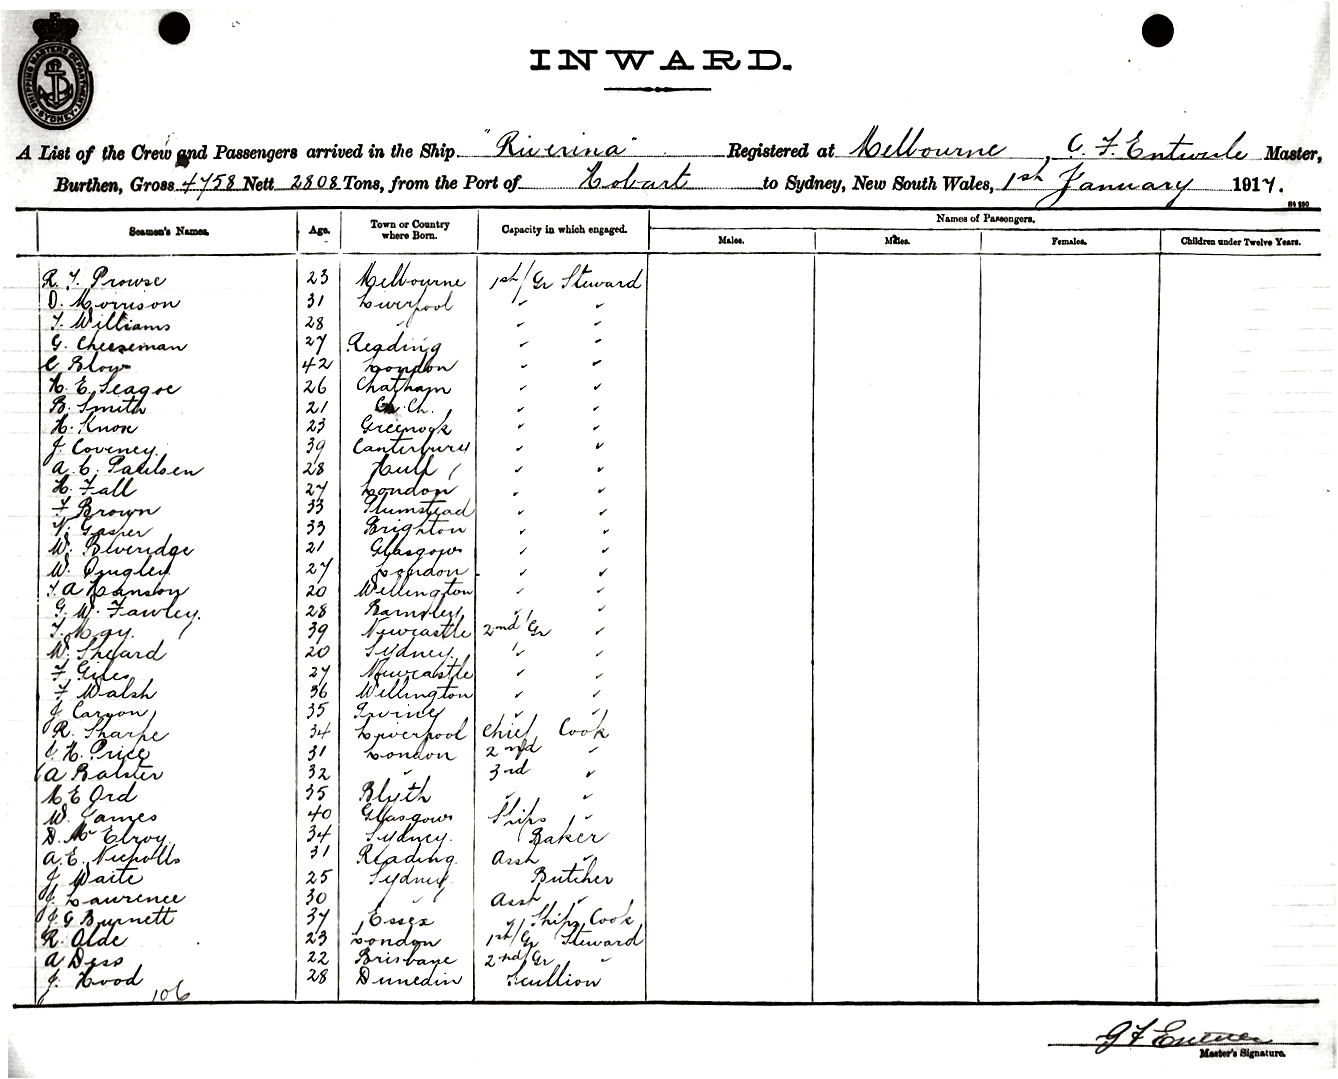 SHIPPING MASTERS DEPARTMENT SYDNEY
INWARD.
A List of the Crew and Passengers arrived in the Ship "Riverina" Registered at Melbourne, C. F. Entwisle Master,
Burthen, Gross 4758 Nett 2808 Tons, from the Port of Hobart to Sydney, New South Wales, 1st January 1917.
Seamen's Names. Age. Town or Country where Born. Capacity in which engaged. Names of Passengers.
Males. Males. Females. Children under Twelve Years.
R. T. Prowse 23 Melbourne 1st/Gr Steward
D. Morrison 31 Liverpool " "
T. Williams 28 " " "
G. Cheeseman 27 Reading " "
C Blow 42 London " "
H. E. Seagoe 26 Chatham " "
B. Smith 21 Ch. Ch. " "
H. Knox 23 Greenock " "
J. Coveney 39 Canterbury " "
A. C. Paulsen 28 Hull " "
H. Fall 27 London " "
F. Brown 33 Plumstead " "
V. Gasper 33 Brighton " "
W. Beveridge 21 Glasgow " "
W. Dingley 27 London " "
T. A Hanson 20 Wellington " "
G. W. Fawley. 28 Barnsley " "
T. May. 39 Newcastle 2nd Gr "
W. Sheard 20 Sydney. " "
F Giles 27 Newcastle " "
F Walsh 36 Wellington " "
J. Caryon 35 Irvine " "
R. Sharpe 34 Liverpool Chief Cook
J. H. Price 31 London 2nd "
A Balster 32 " 3rd "
M. E Ord 35 Blyth " "
W. James 40 Glasgow Ships "
D. McElroy 34 Sydney. Baker
A. E. Nicholls 31 Reading. Asst "
J. Waite 25 Sydney. Butcher
J. Lawrence 30 " Asst "
J. G Burnett 37 Essex " Ships Cook
R. Olde 23 London 1st/Gr Steward
A Dess 22 Brisbane 2nd Gr "
J. Hood 28 Dunedin Scullion
106
Master's Signature.